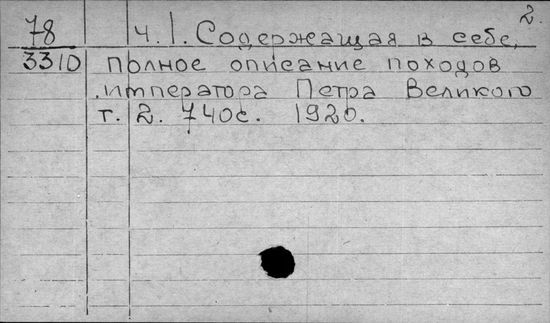 2.
78 ч. 1. Содержащая в себе,
3310 полное описание походов
императора Петра Великого
т. 2. 740с. 1920.